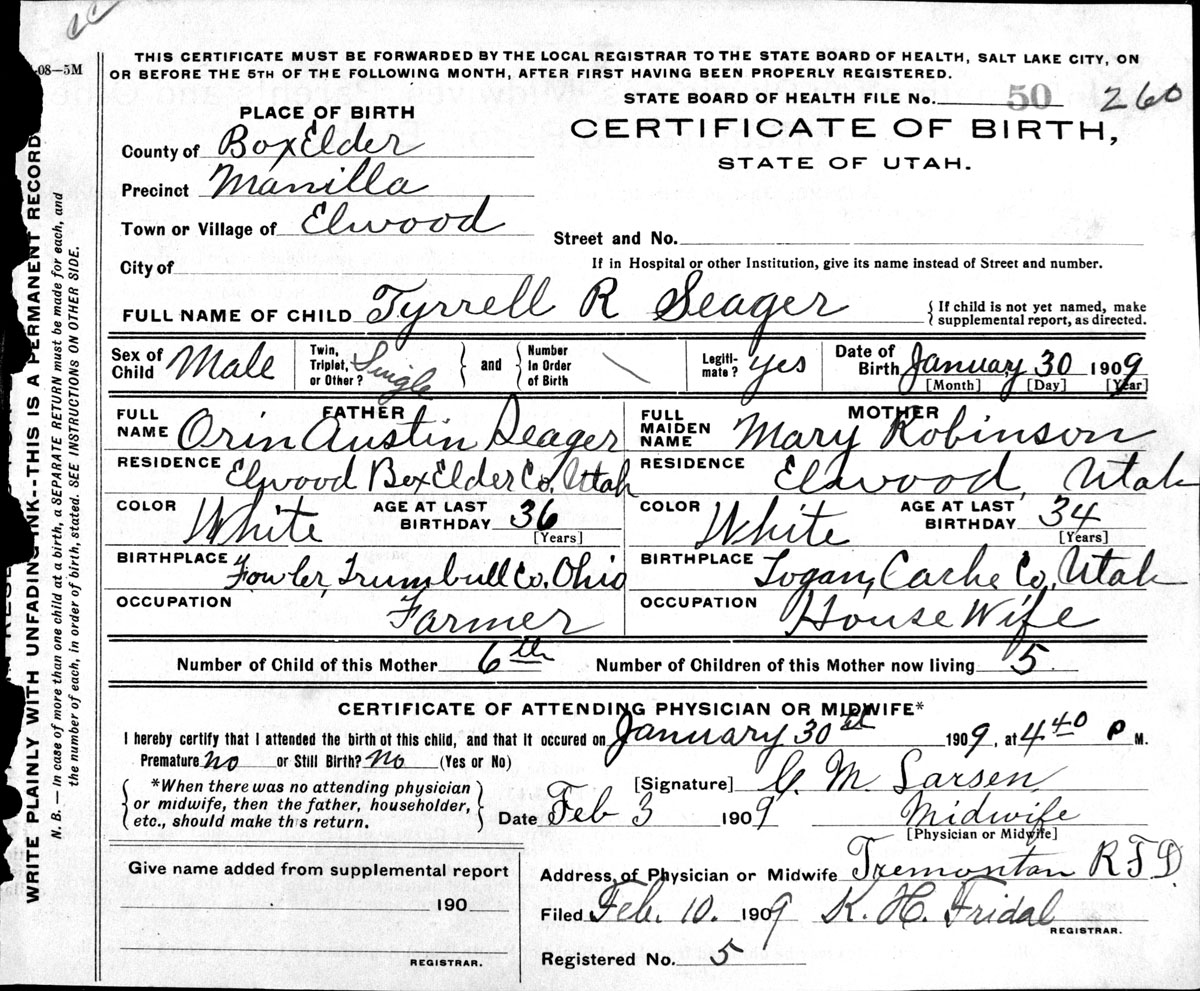 -08—5M
THIS CERTIFICATE MUST BE FORWARDED BY THE LOCAL REGISTRAR TO THE STATE BOARD OF HEALTH, SALT LAKE CITY, ON
OR BEFORE THE 5TH OF THE FOLLOWING MONTH, AFTER FIRST HAVING BEEN PROPERLY REGISTERED.
STATE BOARD OF HEALTH FILE No. 50 260
PLACE OF BIRTH
CERTIFICATE OF BIRTH,
STATE OF UTAH.
County of Box Elder
Precinct Manilla
Town or Village of Elwood
Street and No.
City of
If in Hospital or other Institution, give its name instead of Street and number.
FULL NAME OF CHILD Tyrrell R Seager
{ If child is not yet named, make
supplemental report, as directed.
Sex of Child Male
Twin, Triplet, or Other? Single
and
Number In Order of Birth
Legiti-mate? yes
Date of Birth January 30 1909
[Month] [Day] [Year]
FATHER
FULL NAME Orin Austin Seager
RESIDENCE Elwood Box Elder Co, Utah
COLOR White
AGE AT LAST BIRTHDAY 36
[Years]
BIRTHPLACE Fowler, Trumbull Co, Ohio
OCCUPATION Farmer
MOTHER
FULL MAIDEN NAME Mary Robinson
RESIDENCE Elwood, Utah
COLOR White
AGE AT LAST BIRTHDAY 34
[Years]
BIRTHPLACE Logan, Cache Co, Utah
OCCUPATION House Wife
Number of Child of this Mother 6th Number of Children of this Mother now living 5
CERTIFICATE OF ATTENDING PHYSICIAN OR MIDWIFE*
I hereby certify that I attended the birth of this child, and that it occured on January 30 1909, at 4 40 P M.
Premature? No or Still Birth? No (Yes or No)
{ *When there was no attending physician
or midwife, then the father, householder,
etc., should make this return. }
[Signature] C. M. Larsen
Date Feb 3 1909 Midwife
[Physician or Midwife]
Give name added from supplemental report
190
REGISTRAR.
Address of Physician or Midwife Tremonton R F D.
Filed Feb. 10. 1909 K. H. Fridal
REGISTRAR.
Registered No. 5
WRITE PLAINLY WITH UNFADING INK--THIS IS A PERMANENT RECORD
N. B. — In case of more than one child at a birth, a SEPARATE RETURN must be made for each, and
the number of each, in order of birth, stated. SEE INSTRUCTIONS ON OTHER SIDE.